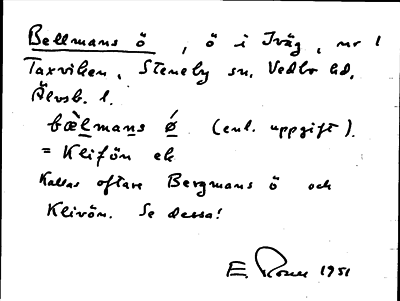 Bellmans ö, ö i Iväg, nr 1
Taxviken, Steneby sn, Vedbo hd,
Älvsb. l.
bæ̀lmans ǿ (enl. uppgift).
= Klifön ek
Kallas oftare Bergmans ö och
Klivön. Se dessa!
E. 1951